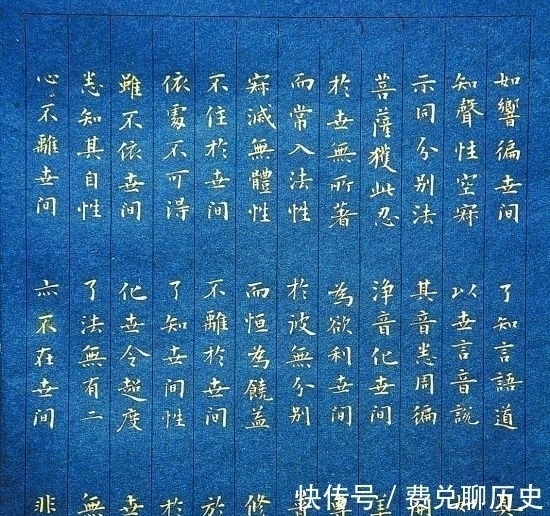 如響徧世间 了知言語道
知聲性空寂 以世言音說
示同分别法 其音悉周徧
菩薩獲此忍 浄音化世间
於世無所著 為欲利世间
而常入法性 於彼無分别
寂滅無體性 而恒為饒益 修
不住於世间 不離於世间 於
依處不可得 了知世间性 於
雖不依世间 化世令超度 世
悉知其自性 了法無有二 無
心不離世间 亦不在世间 非
快传号/费兑聊历史